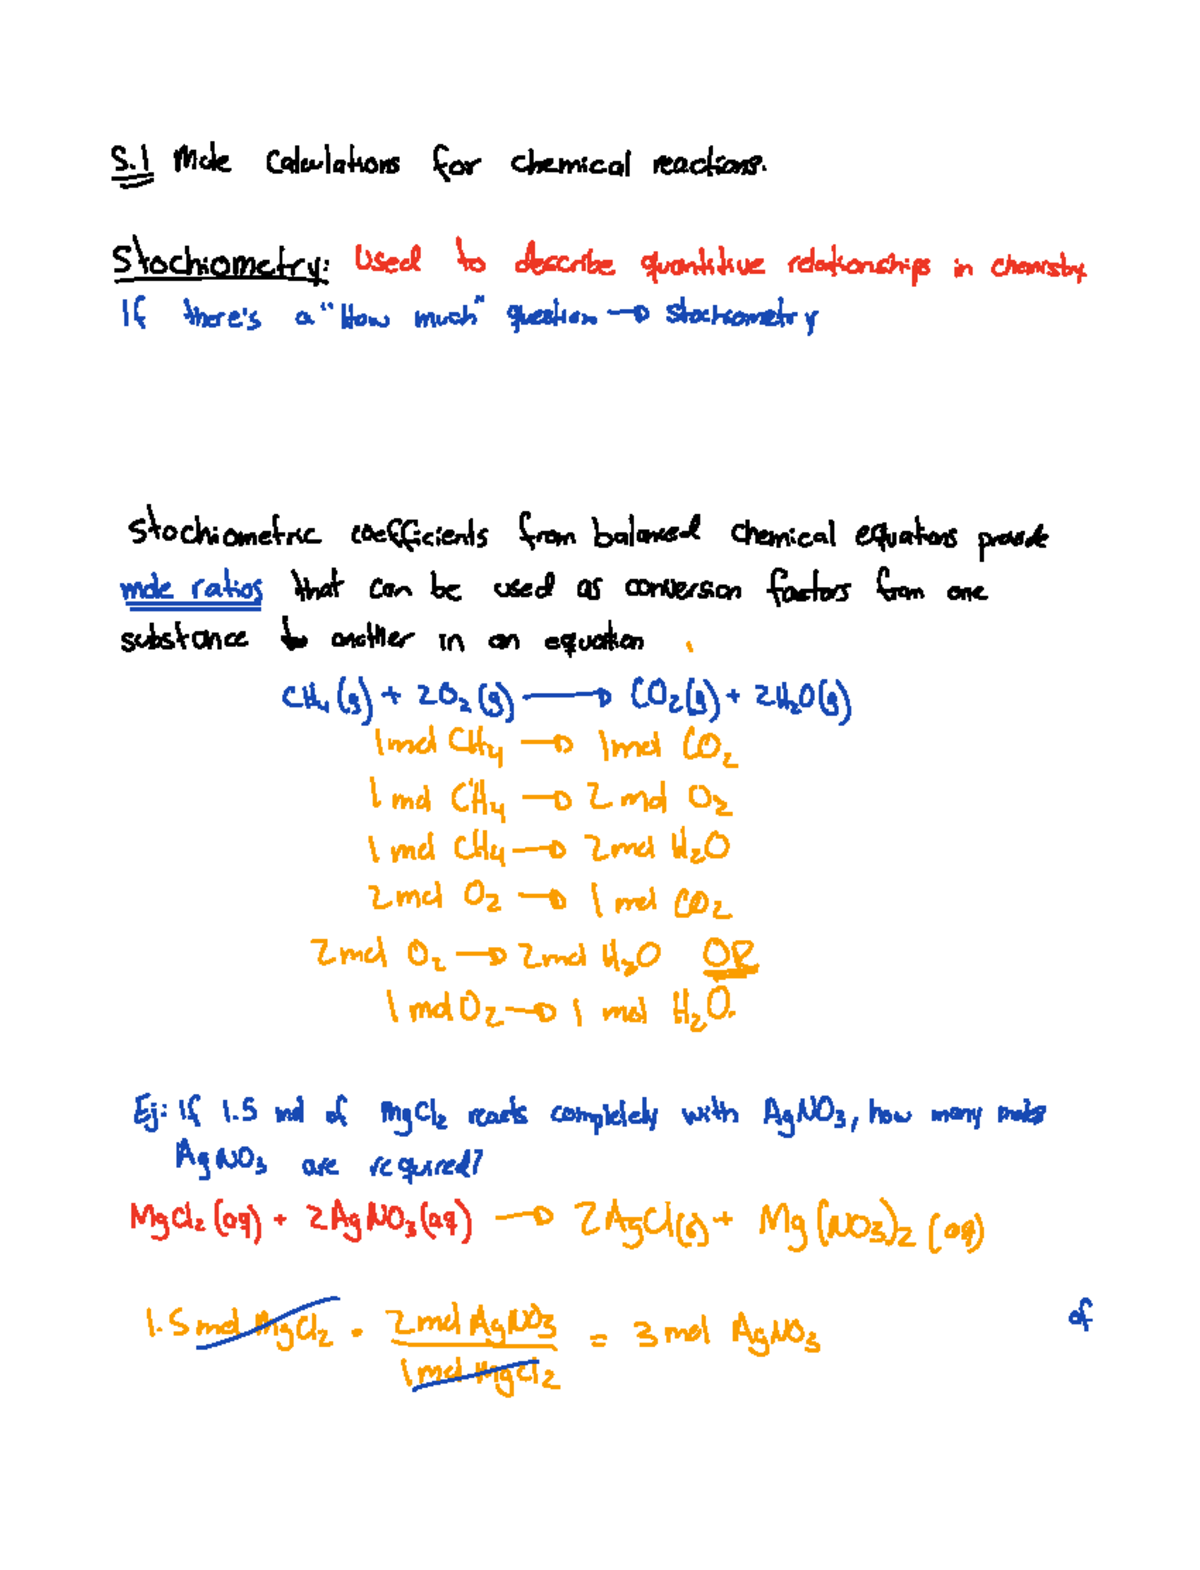 5.1 Mole Calculations for chemical reactions.
Stochiometry: Used to describe quantitive relationships in chemistry
If there's a "How much" question → Stochiometry
Stochiometric coefficients from balanced chemical equations provide
mole ratios that can be used as conversion factors from one
substance to another in an equation
CH₄(g) + 2O₂(g) → CO₂(g) + 2H₂O(g)
1mol CH₄ → 1mol CO₂
1 mol CH₄ → 2 mol O₂
1 mol CH₄ → 2mol H₂O
2mol O₂ → 1 mol CO₂
2mol O₂ → 2mol H₂O OR
1 mol O₂ → 1 mol H₂O.
Ej: If 1.5 mol of MgCl₂ reacts completely with AgNO₃, how many moles of
AgNO₃ are required?
MgCl₂(aq) + 2AgNO₃(aq) → 2AgCl(s) + Mg(NO₃)₂(aq)
1.5 mol MgCl₂ · 2mol AgNO₃ / 1mol MgCl₂ = 3 mol AgNO₃